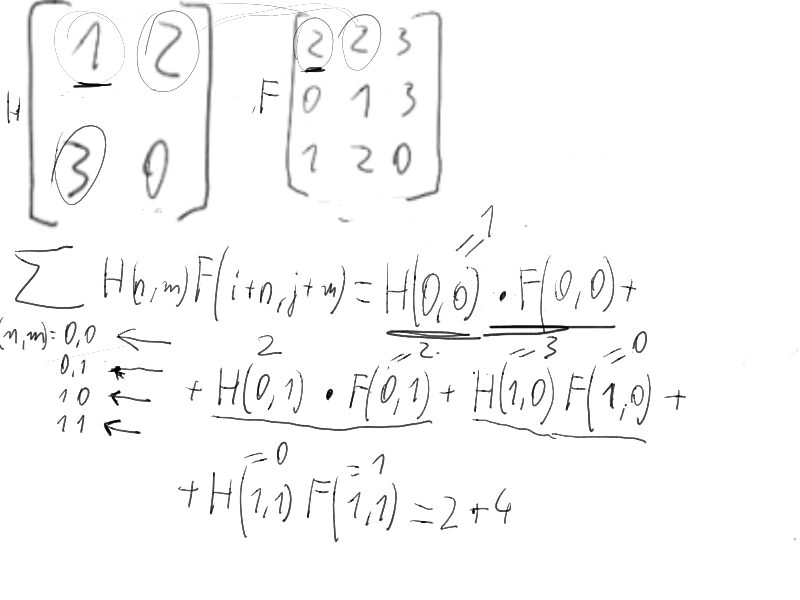 H [1 2
3 0]
F [2 2 3
0 1 3
1 2 0]
=1
∑ H(n,m)F(i+n,j+m) = H(0,0) · F(0,0) +
(n,m)=0,0 ←
2 =2 =3 =0
0,1 ←
+ H(0,1) · F(0,1) + H(1,0) F(1,0) +
10 ←
11 ←
=0 =1
+ H(1,1) F(1,1) = 2 + 4